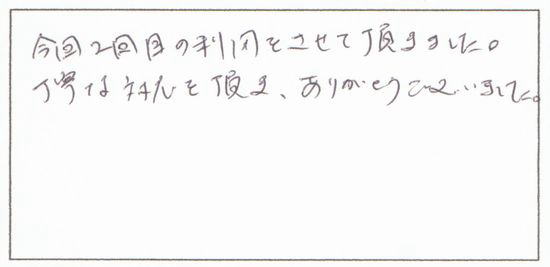 今回2回目の利用をさせて頂きました。
丁寧な対応を頂き、ありがとうございました。